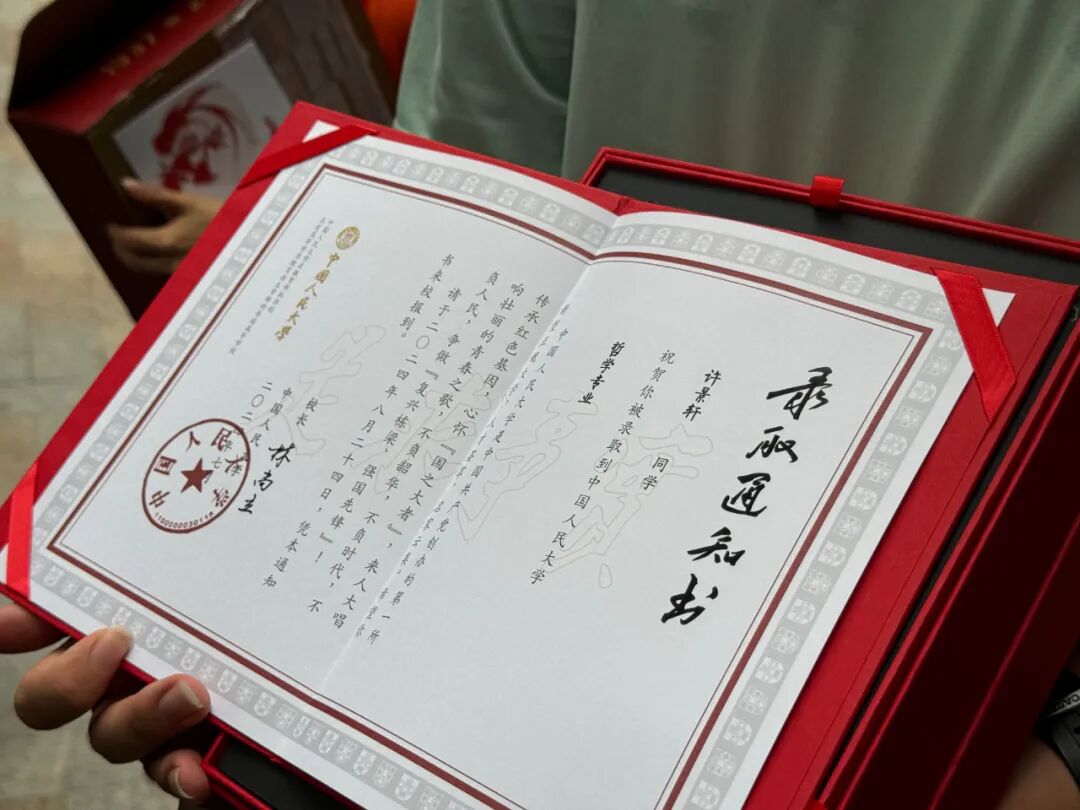 录取通知书
许景轩 同学
祝贺你被录取到中国人民大学
哲学专业
中国人民大学是中国共产党创办的第一所
传承红色基因，心怀『国之大者』，来人大唱
响壮丽的青春之歌，不负韶华，不负时代，不
负人民，争做『复兴栋梁，强国先锋』！
请于二〇二四年八月二十四日，凭本通知
书来校报到。
校长 林尚立
中国人民
二〇二
中国人民大学